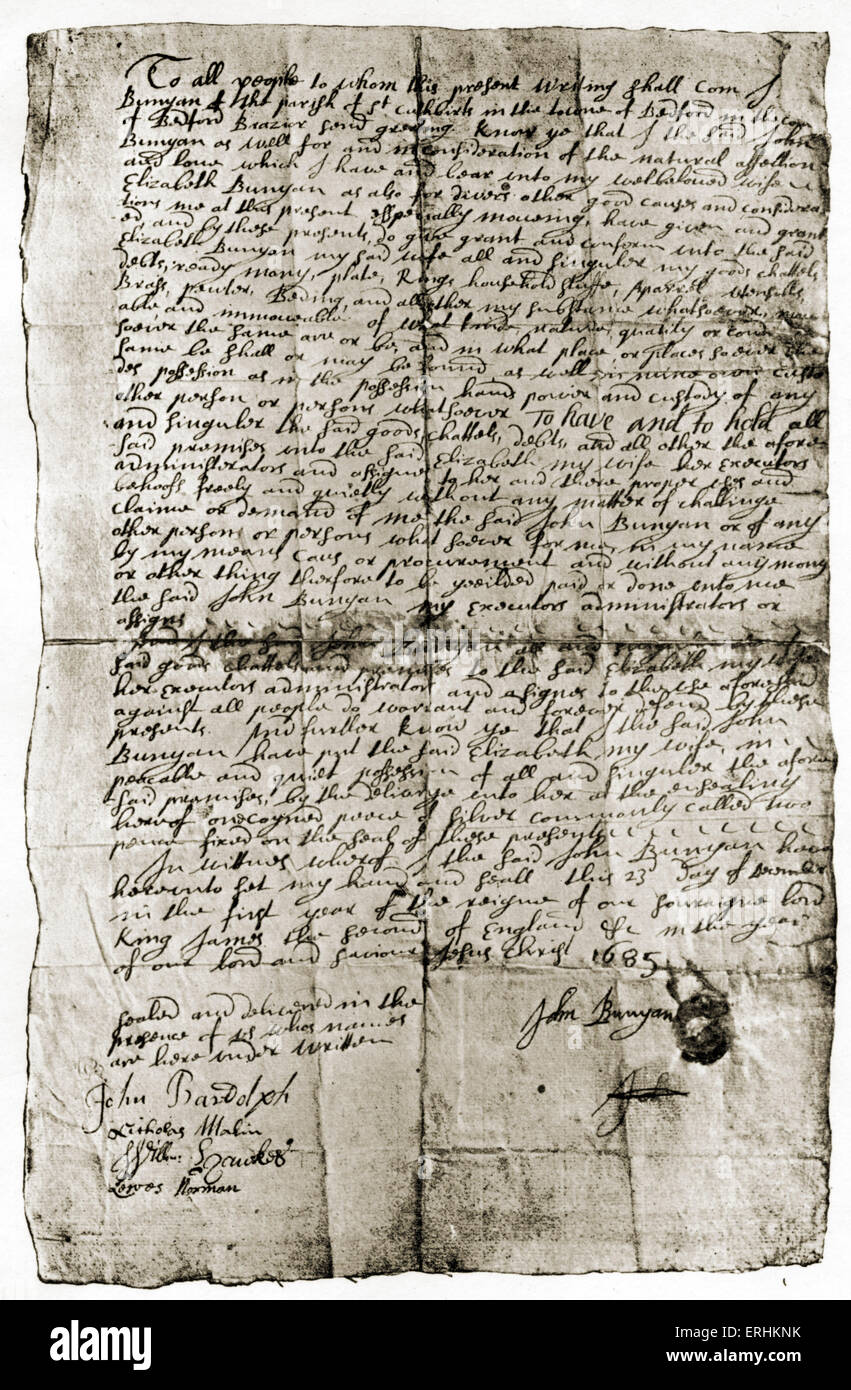 To all people to whom this present writing shall Com I
Bunyan of the parish of St Cuthbirts in the towne of Bedford in the
of Bedford Brazier send greeting Know ye that I the said John
Bunyan as well for and in consideration of the natural affection
and love which I have and bear unto my welbeloved wife
Elizabeth Bunyan as also for divers other good causes and considera
tions me at this present especially moveing, have given and grant
ed, and by these presents, do give grant and conform unto the said
Elizabeth Bunyan my said wife all and singuler my goods Chattels
debts, ready mony, plate, Rings household stuffe, Aparrel Utensills
Brass, pewter, Beding, and all other my substance whatsoever, move
able and immoveable of what kinde, nature, quality or
soever the same are or be, and in what place, or places soever the
same be shall or may be found as well in mine own custo
des possession as in the possession hands power and custody of any
other person or persons whatsoever To have and to hold all
and singuler the said goods, chattels, debts, and all other the afore
said premises unto the said Elizabeth my wife her executors
administrators and assignes to her and there proper uses and
behoofs freely and quietly without any matter of challinge
claime or demand of me the said John Bunyan or of any
other persons or persons whatsoever for me in my name
by my means caus or procurement and without any mony
or other thing therefore to be yeeilded paid or done unto me
the said John Bunyan my executors administrators or
assigns
And I the said John Bunyan all and singuler
said goods chattels and premises to the said Elizabeth my wife
her executors administrators and assignes to the use aforesaid
against all people do warrant and forever defend by these
presents. And further know ye that I the said John
Bunyan have put the said Elizabeth my wife, in
peacable and quiet possession of all and singuler the afore
said premises, by the delivrye unto her at the ensealing
hereof one coyned peece of silver commonly called two
pence fixed on the seal of these presents
In wittnes wherof I the said John Bunyan have
hereunto set my hand and seall this 23 day of December
in the first year of the reigne of our soveraigne lord
King James the second of England &c in the year
of our lord and saviour Jesus Christ 1685
sealed and delivered in the
presence of us whos names
are here under written
John Bunyan
John Bardolph
Nicholas Malin
Willm Hawkes
Lewes Norman
alamy
Image ID: ERHKNK
www.alamy.com